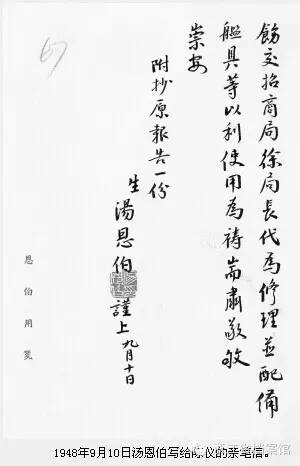 飭交招商局徐局長代為修理並配備
艦具等以利使用為禱耑肅敬頌
崇安
附抄原報告一份
生 湯恩伯 謹上 九月十日
恩伯用箋
1948年9月10日汤恩伯写给陈仪的亲笔信。